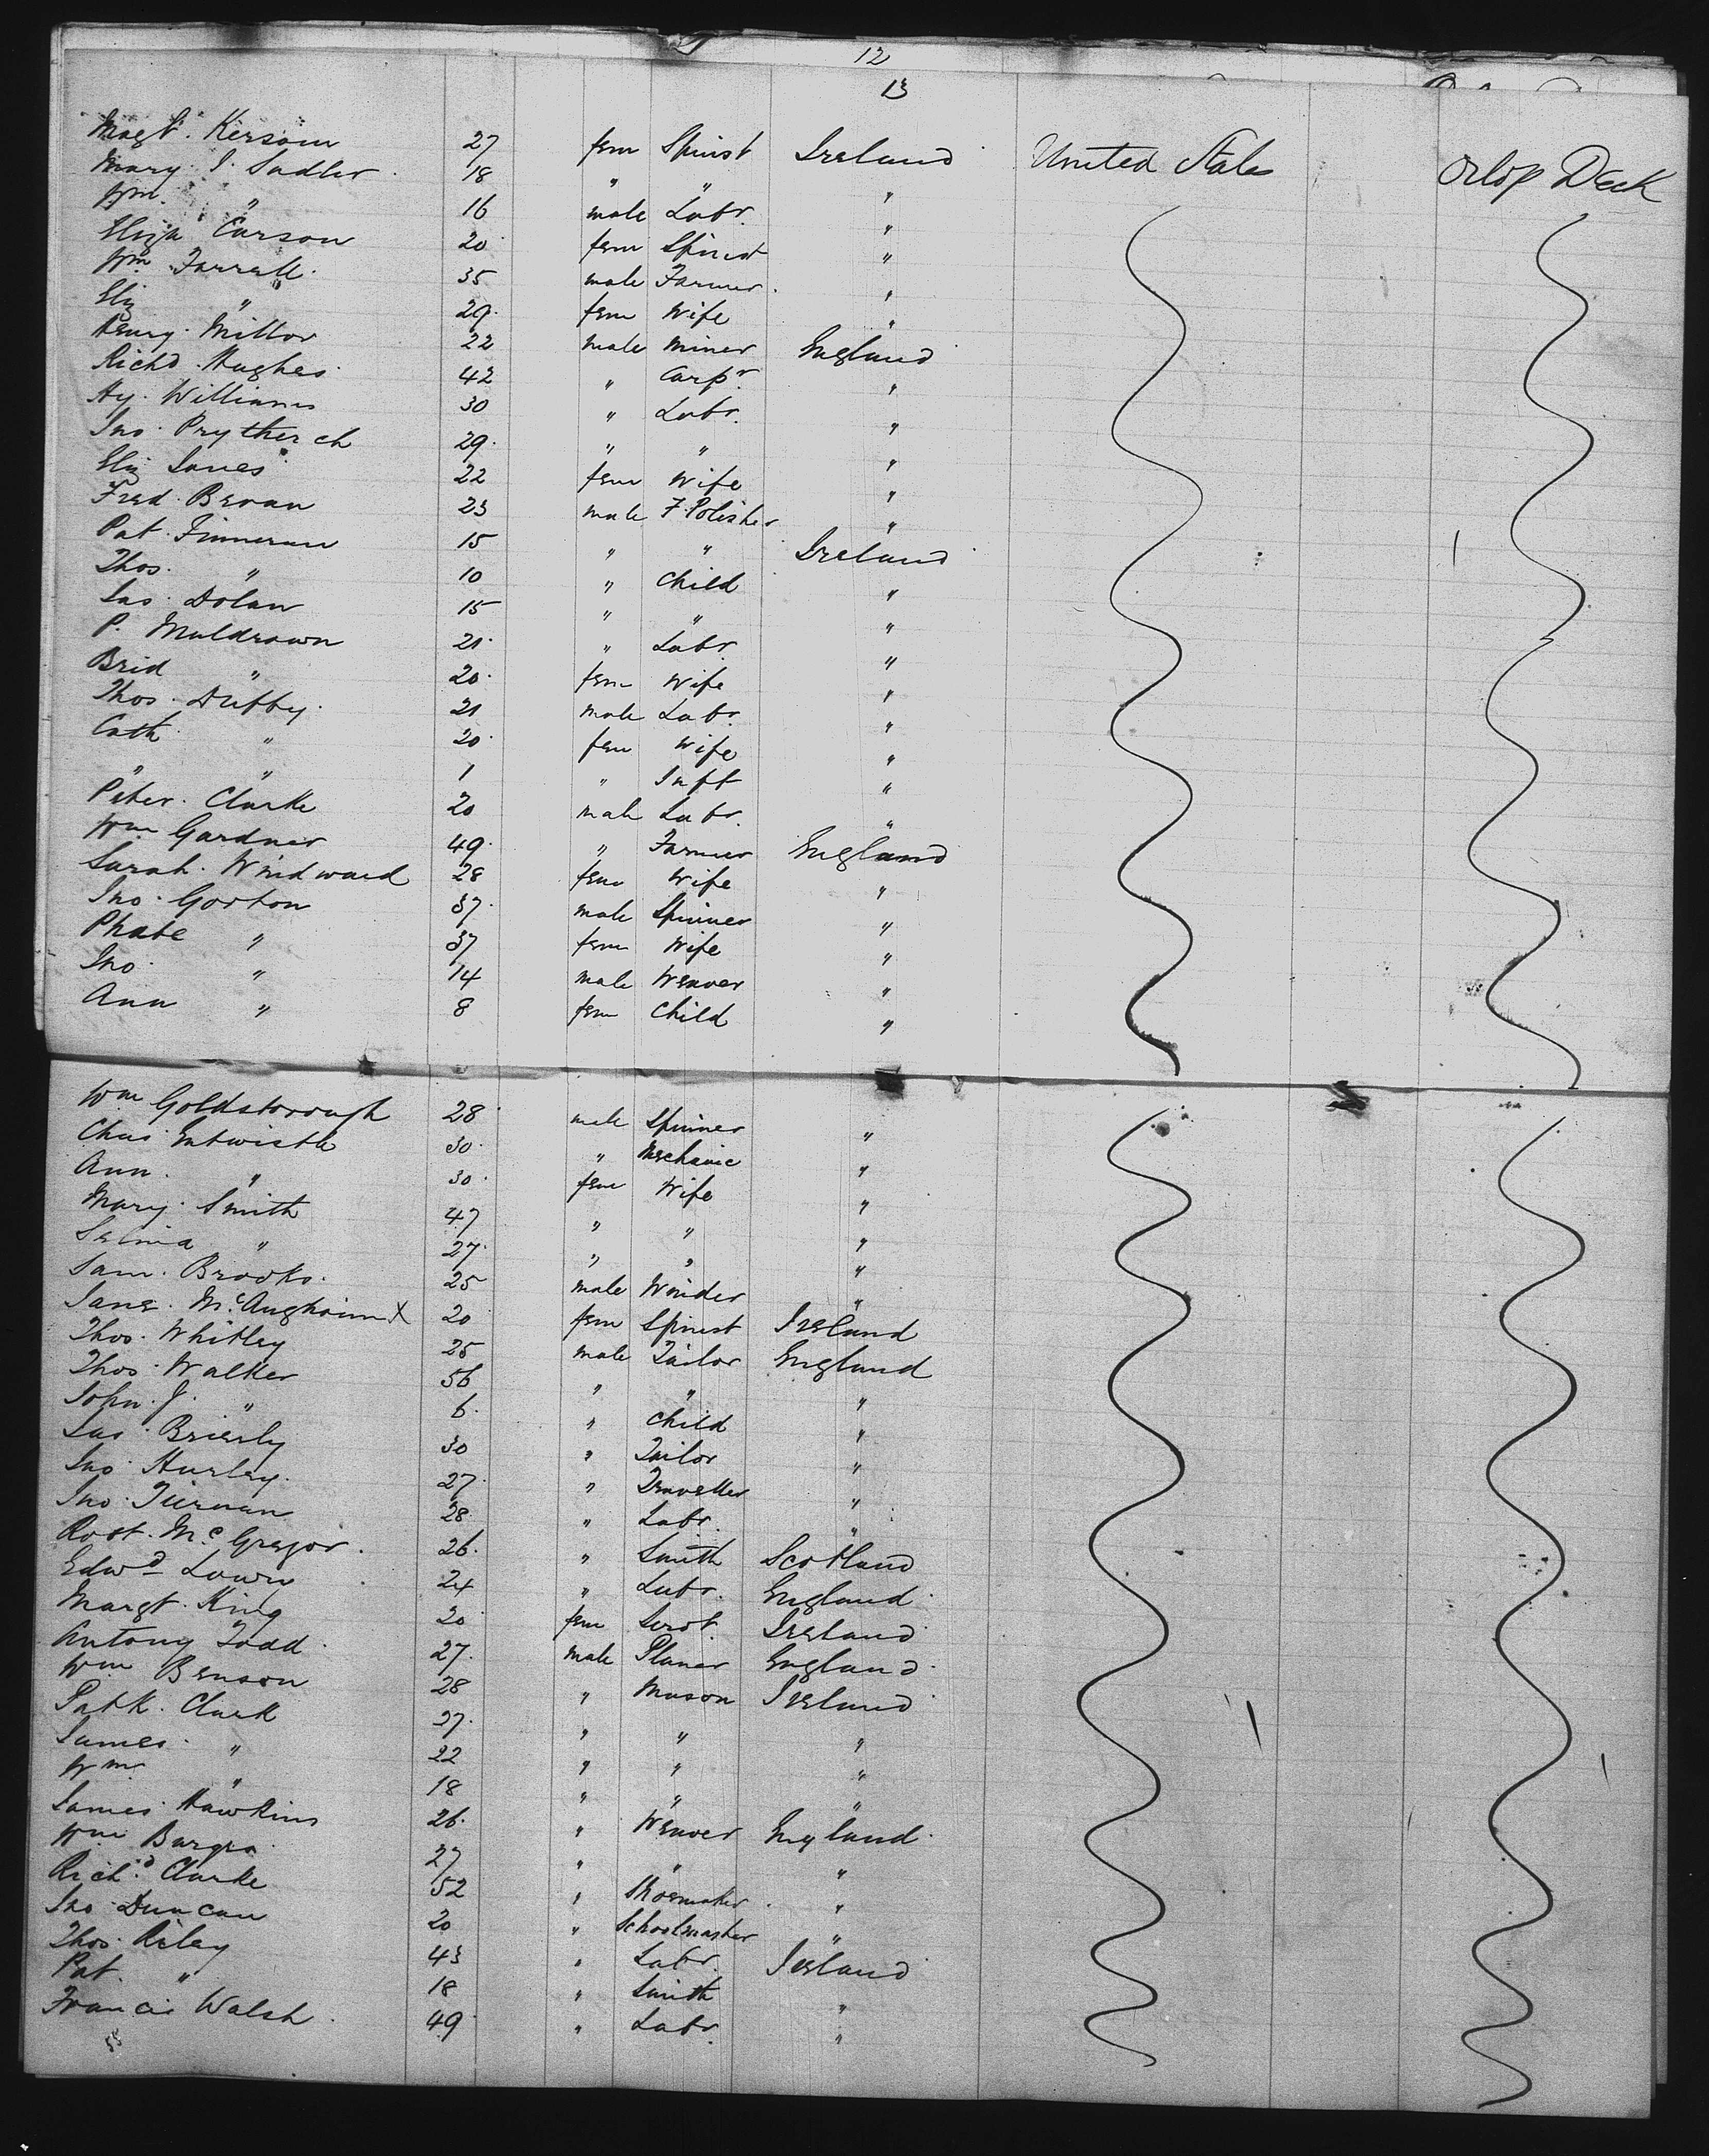 12
13
Magt. Kersoun 27 fem Spinst Ireland United States Orlop Deck
Mary J. Sadler 18 " " "
Wm. " 16 male Labr. "
Eliza Carson 20 fem Spinst "
Wm Farrell 35 male Farmer "
Eliz " 29 fem Wife "
Henry Millor 22 male Miner England
Richd Hughes 42 " Carpr. "
Hy. Williams 30 " Labr. "
Jno. Prytherch 29 " " "
Eliz Jones 22 fem Wife "
Fred Bevan 23 male F. Polisher "
Pat Finneran 15 " " Ireland
Thos. " 10 " Child "
Jas. Dolan 15 " " "
P. Muldrown 21 " Labr. "
Brid " 20 fem Wife "
Thos. Duffy 21 male Labr. "
Cath " 20 fem Wife "
" " 1 " Inft "
Peter Clarke 20 male Labr. "
Wm Gardner 49 " Farmer England
Sarah Windward 28 fem Wife "
Jno. Gorton 37 male Spinner "
Phabe " 37 fem Wife "
Jno. " 14 male Weaver "
Ann " 8 fem Child "
Wm Goldsborough 28 male Spinner "
Chas Entwistle 30 " Mechanic "
Ann " 30 fem Wife "
Mary Smith 47 " " "
Selina " 27 " " "
Sam. Brooks 25 male Winder "
Jane McAughoim X 20 fem Spinst Ireland
Thos. Whitley 25 male Tailor England
Thos Walker 56 " " "
John J. " 6 " Child "
Jas Brierly 30 " Tailor "
Jno Hurley 27 " Traveller "
Jno. Tiernan 28 " Labr. "
Robt. Mc Gregor 26 " Smith Scotland
Edwd Lowry 24 " Labr. England
Margt. King 20 fem Servt. Ireland
Antony Todd 27 male Planer England
Wm Benson 28 " Mason Ireland
Patk. Clark 27 " " "
James " 22 " " "
Wm " 18 " " "
James Hawkins 26 " Weaver England
Wm 27 " " "
Richd Clarke 52 " Shoemaker "
Jno Duncan 20 " Schoolmaster "
Thos. Riley 43 " Labr. Ireland
Pat. " 18 " Smith "
Francis Walsh 49 " Labr. "
55